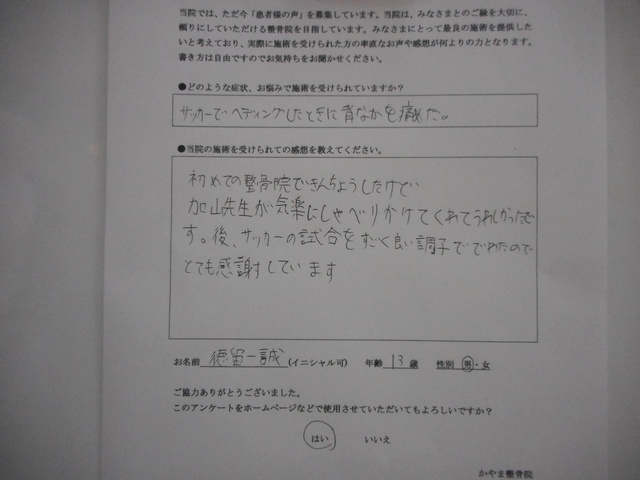 当院では、ただ今「患者様の声」を募集しています。当院は、みなさまとのご縁を大切に、
頼りにしていただける整骨院を目指しています。みなさまにとって最良の施術を提供した
いと考えており、実際に施術を受けられた方の率直なお声や感想が何よりの力となります。
書き方は自由ですのでお気持ちをお聞かせください。
●どのような症状、お悩みで施術を受けられていますか?
サッカーでヘディングしたときに背なかを痛めた。
●当院の施術を受けられての感想を教えてください。
初めての整骨院できんちょうしたけど
加山先生が気楽にしゃべりかけてくれてうれしかったで
す。後、サッカーの試合をすごく良い調子ででれたので
とても感謝しています
お名前 徳留一誠 (イニシャル可) 年齢 13 歳 性別 男・女
ご協力ありがとうございました。
このアンケートをホームページなどで使用させていただいてもよろしいですか?
はい いいえ
かやま整骨院